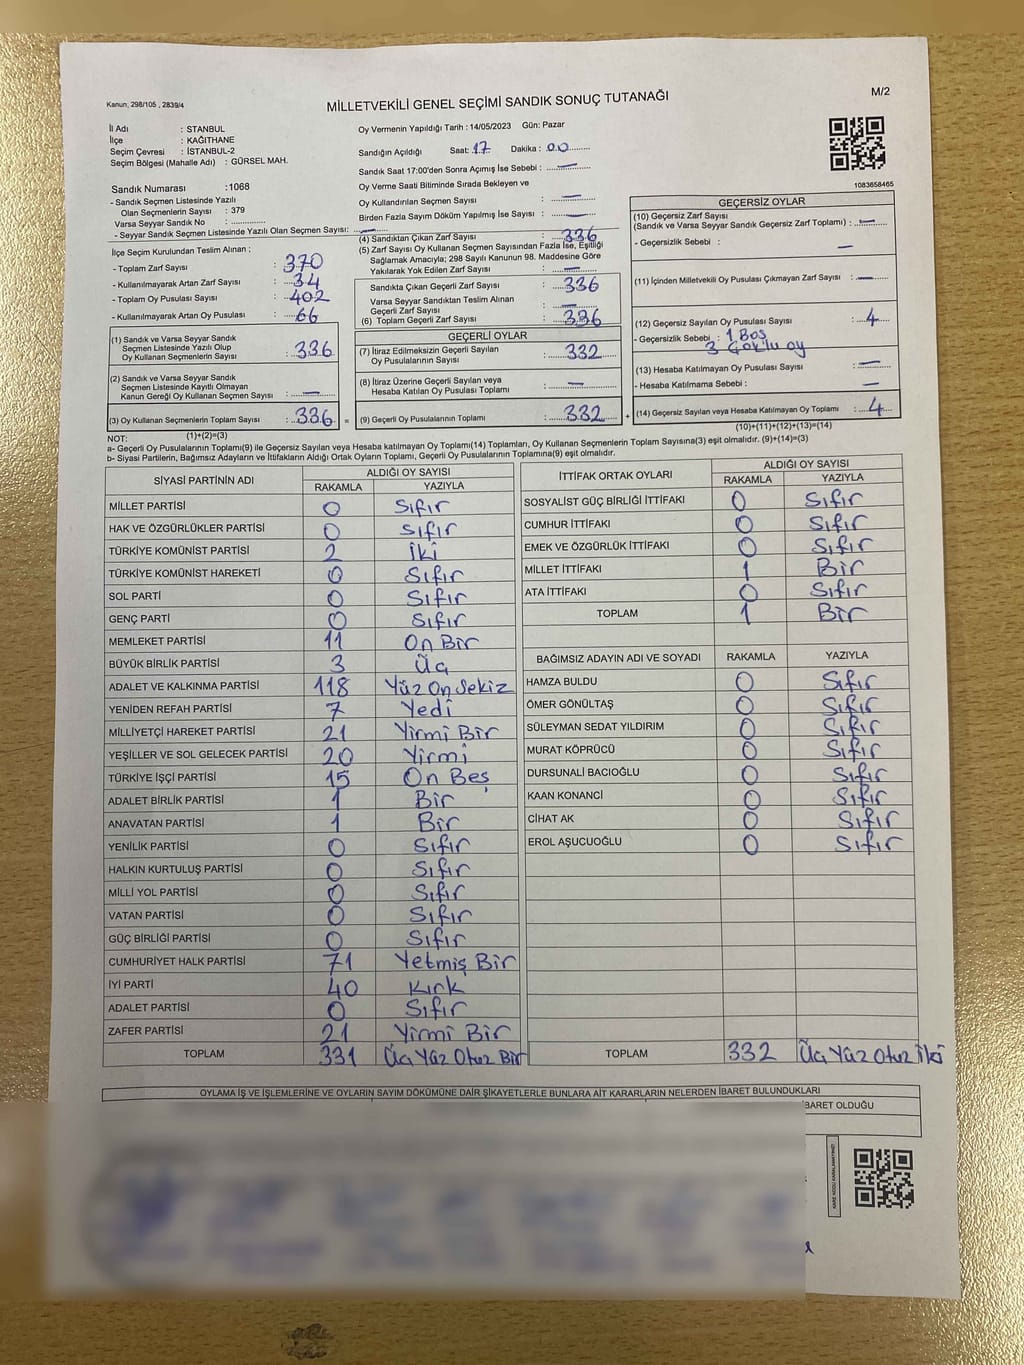 Kanun, 298/105 , 2839/4
MİLLETVEKİLİ GENEL SEÇİMİ SANDIK SONUÇ TUTANAĞI
M/2
İl Adı : STANBUL
İlçe : KAĞITHANE
Seçim Çevresi : İSTANBUL-2
Seçim Bölgesi (Mahalle Adı) : GÜRSEL MAH.
Oy Vermenin Yapıldığı Tarih : 14/05/2023 Gün: Pazar
Sandığın Açıldığı Saat: 17 Dakika : 00
Sandık Saat 17:00'den Sonra Açımış İse Sebebi : —
Oy Verme Saati Bitiminde Sırada Bekleyen ve
Oy Kullandırılan Seçmen Sayısı : —
Birden Fazla Sayım Döküm Yapılmış İse Sayısı : —
1083658465
Sandık Numarası :1068
- Sandık Seçmen Listesinde Yazılı
Olan Seçmenlerin Sayısı : 379
Varsa Seyyar Sandık No :
- Seyyar Sandık Seçmen Listesinde Yazılı Olan Seçmen Sayısı: —
İlçe Seçim Kurulundan Teslim Alınan :
- Toplam Zarf Sayısı : 370
- Kullanılmayarak Artan Zarf Sayısı : 34
- Toplam Oy Pusulası Sayısı : 402
- Kullanılmayarak Artan Oy Pusulası : 66
(1) Sandık ve Varsa Seyyar Sandık
Seçmen Listesinde Yazılı Olup
Oy Kullanan Seçmenlerin Sayısı : 336
(2) Sandık ve Varsa Seyyar Sandık
Seçmen Listesinde Kayıtlı Olmayan
Kanun Gereği Oy Kullanan Seçmen Sayısı : —
(3) Oy Kullanan Seçmenlerin Toplam Sayısı : 336 =
(1)+(2)=(3)
(4) Sandıktan Çıkan Zarf Sayısı : 336
(5) Zarf Sayısı Oy Kullanan Seçmen Sayısından Fazla İse, Eşitliği
Sağlamak Amacıyla; 298 Sayılı Kanunun 98. Maddesine Göre
Yakılarak Yok Edilen Zarf Sayısı : —
Sandıkta Çıkan Geçerli Zarf Sayısı : 336
Varsa Seyyar Sandıktan Teslim Alınan
Geçerli Zarf Sayısı : —
(6) Toplam Geçerli Zarf Sayısı : 336
GEÇERLİ OYLAR
(7) İtiraz Edilmeksizin Geçerli Sayılan
Oy Pusulalarının Sayısı : 332
(8) İtiraz Üzerine Geçerli Sayılan veya
Hesaba Katılan Oy Pusulası Toplamı : —
(9) Geçerli Oy Pusulalarının Toplamı : 332 +
GEÇERSİZ OYLAR
(10) Geçersiz Zarf Sayısı
(Sandık ve Varsa Seyyar Sandık Geçersiz Zarf Toplamı) : —
- Geçersizlik Sebebi : —
(11) İçinden Milletvekili Oy Pusulası Çıkmayan Zarf Sayısı : —
(12) Geçersiz Sayılan Oy Pusulası Sayısı : 4
- Geçersizlik Sebebi : 1 Boş
3 Çoklu oy
(13) Hesaba Katılmayan Oy Pusulası Sayısı : —
- Hesaba Katılmama Sebebi : —
(14) Geçersiz Sayılan veya Hesaba Katılmayan Oy Toplamı : 4
(10)+(11)+(12)+(13)=(14)
NOT:
a- Geçerli Oy Pusulalarının Toplamı(9) ile Geçersiz Sayılan veya Hesaba katılmayan Oy Toplamı(14) Toplamları, Oy Kullanan Seçmenlerin Toplam Sayısına(3) eşit olmalıdır. (9)+(14)=(3)
b- Siyasi Partilerin, Bağımsız Adayların ve İttifakların Aldığı Ortak Oyların Toplamı, Geçerli Oy Pusulalarının Toplamına(9) eşit olmalıdır.
SİYASİ PARTİNİN ADI ALDIĞI OY SAYISI
RAKAMLA YAZIYLA
MİLLET PARTİSİ 0 Sıfır
HAK VE ÖZGÜRLÜKLER PARTİSİ 0 Sıfır
TÜRKİYE KOMÜNİST PARTİSİ 2 İki
TÜRKİYE KOMÜNİST HAREKETİ 0 Sıfır
SOL PARTİ 0 Sıfır
GENÇ PARTİ 0 Sıfır
MEMLEKET PARTİSİ 11 On Bir
BÜYÜK BİRLİK PARTİSİ 3 Üç
ADALET VE KALKINMA PARTİSİ 118 Yüz On Sekiz
YENİDEN REFAH PARTİSİ 7 Yedi
MİLLİYETÇİ HAREKET PARTİSİ 21 Yirmi Bir
YEŞİLLER VE SOL GELECEK PARTİSİ 20 Yirmi
TÜRKİYE İŞÇİ PARTİSİ 15 On Beş
ADALET BİRLİK PARTİSİ 1 Bir
ANAVATAN PARTİSİ 1 Bir
YENİLİK PARTİSİ 0 Sıfır
HALKIN KURTULUŞ PARTİSİ 0 Sıfır
MİLLİ YOL PARTİSİ 0 Sıfır
VATAN PARTİSİ 0 Sıfır
GÜÇ BİRLİĞİ PARTİSİ 0 Sıfır
CUMHURİYET HALK PARTİSİ 71 Yetmiş Bir
İYİ PARTİ 40 Kırk
ADALET PARTİSİ 0 Sıfır
ZAFER PARTİSİ 21 Yirmi Bir
TOPLAM 331 Üç Yüz Otuz Bir
İTTİFAK ORTAK OYLARI ALDIĞI OY SAYISI
RAKAMLA YAZIYLA
SOSYALİST GÜÇ BİRLİĞİ İTTİFAKI 0 Sıfır
CUMHUR İTTİFAKI 0 Sıfır
EMEK VE ÖZGÜRLÜK İTTİFAKI 0 Sıfır
MİLLET İTTİFAKI 1 Bir
ATA İTTİFAKI 0 Sıfır
TOPLAM 1 Bir
BAĞIMSIZ ADAYIN ADI VE SOYADI RAKAMLA YAZIYLA
HAMZA BULDU 0 Sıfır
ÖMER GÖNÜLTAŞ 0 Sıfır
SÜLEYMAN SEDAT YILDIRIM 0 Sıfır
MURAT KÖPRÜCÜ 0 Sıfır
DURSUNALİ BACIOĞLU 0 Sıfır
KAAN KONANCİ 0 Sıfır
CİHAT AK 0 Sıfır
EROL AŞUCUOĞLU 0 Sıfır
TOPLAM 332 Üç Yüz Otuz İki
OYLAMA İŞ VE İŞLEMLERİNE VE OYLARIN SAYIM DÖKÜMÜNE DAİR ŞİKAYETLERLE BUNLARA AİT KARARLARIN NELERDEN İBARET BULUNDUKLARI
BARET OLDUĞU